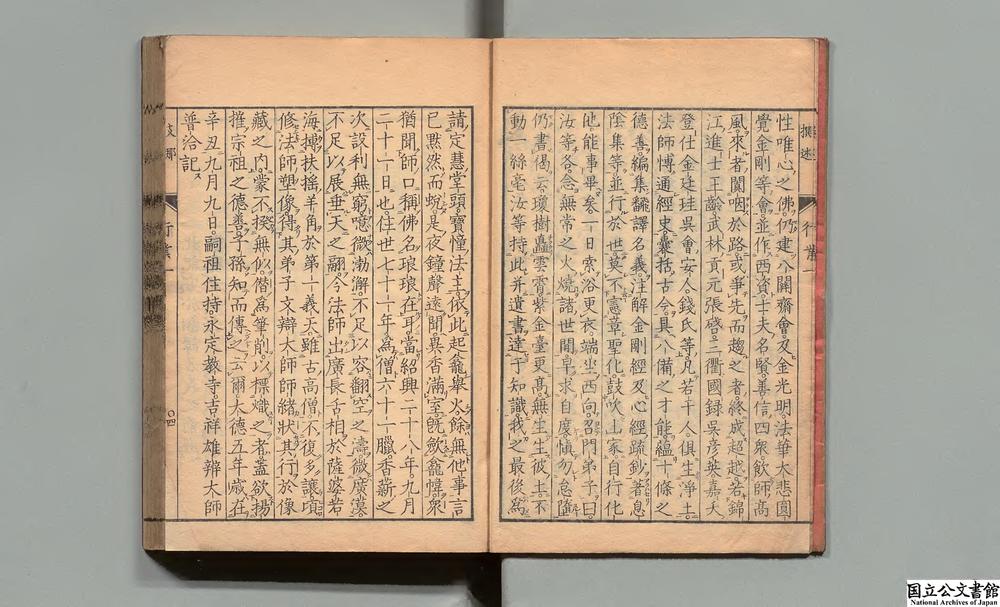 性唯心之佛仍建八關齋會及金光明法華大悲圓
覺金剛等會並作西資士夫名賢善信四衆飲師高
風來者闐咽於路或爭先而趨之者終成超越若錦
江進士王齡武林貢元張啓三衢國録吳彥英嘉夭
登仕金廷珪吳會安人錢氏等凡若干人俱生淨土
法師博通經史囊括古今具八備之才能蘊十條之
德善編集翻譯名義注解金剛經及心經疏鈔著息
陰集等並行於世莫不憲章聖化鼓吹上家自行化
他能事畢矣一日索浴更衣端坐西向召門弟子曰
汝等各念無常之火燒諸世間早求自度愼勿怠墮
仍書偈云瓊樹矗雲霄紫金臺更高無生生彼土不
動一絲毫汝等持此并遺書達于知識我之最後爲
請定慧堂頭寶憧法主依此起龕擧火餘無他事言
已黙然而蛻是夜鐘聲遠聞異香滿室旣歛龕幃衆
猶聞師口稱佛名琅琅在耳當紹興二十八年九月
二十一日也住世七十一年爲僧六十一臘香薪之
次設利無窮噫微渤澥不足以容翻空之濤微廣漠
不足以展垂天之翮今法師出廣長舌相於薩婆若
海摶扶搖羊角於第一義天雖古高僧不復多讓頃
修法師塑像得其弟子文辯大師師緒狀其行於像
藏之内蒙不揆無似僣爲筆削以標熾之者蓋欲揚
搉宗祖之德善子孫知而傳之云爾大德五年歲在
辛丑九月九日嗣祖住持永定教寺吉祥雄辨大師
普洽記
撰述
行業一
支那
行業一
〇四
国立公文書館
National Archives of Japan